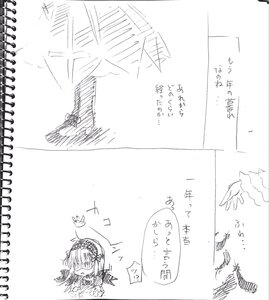 もう一年の暮れ
なのね…
あれから
どのくらい
経ったのか…
ふわ…
一年って本当
あっ
あっと言う間
かしら…